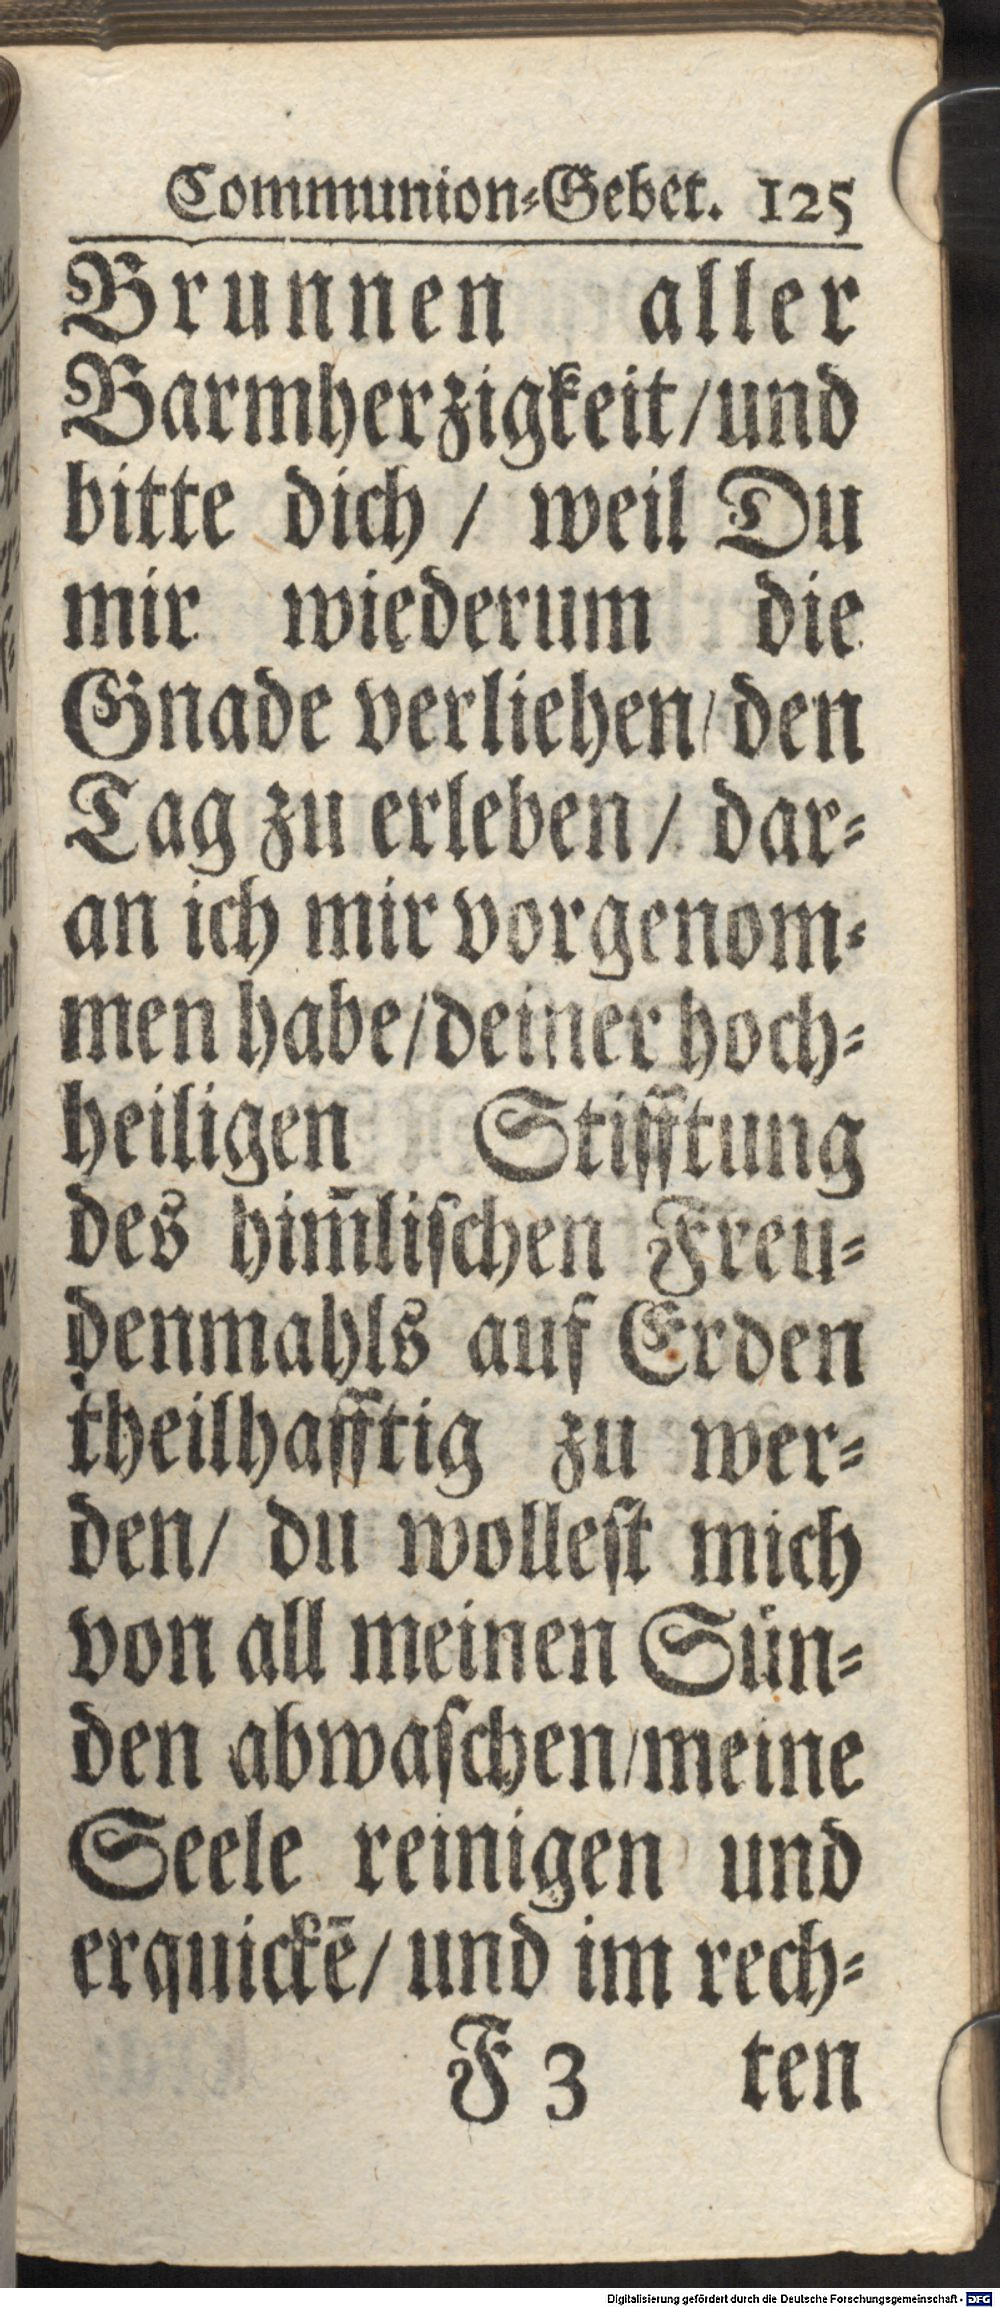 Communion⸗Gebet. 125
Brunnen aller
Barmherzigkeit/und
bitte dich / weil Du
mir wiederum die
Gnade verliehen/den
Tag zu erleben / dar⸗
an ich mir vorgenom⸗
men habe/deiner hoch⸗
heiligen Stifftung
des him̄liſchen Freu⸗
denmahls auf Erden
theilhafftig zu wer⸗
den/ du wolleſt mich
von all meinen Suͤn⸗
den abwaſchen/meine
Seele reinigen und
erquickē/ und im rech⸗
F 3 ten
Digitalisierung gefördert durch die Deutsche Forschungsgemeinschaft - DFG